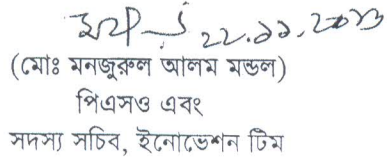 ২২.১১.২০২৩
(মোঃ মনজুরুল আলম মন্ডল)
পিএসও এবং
সদস্য সচিব, ইনোভেশন টিম